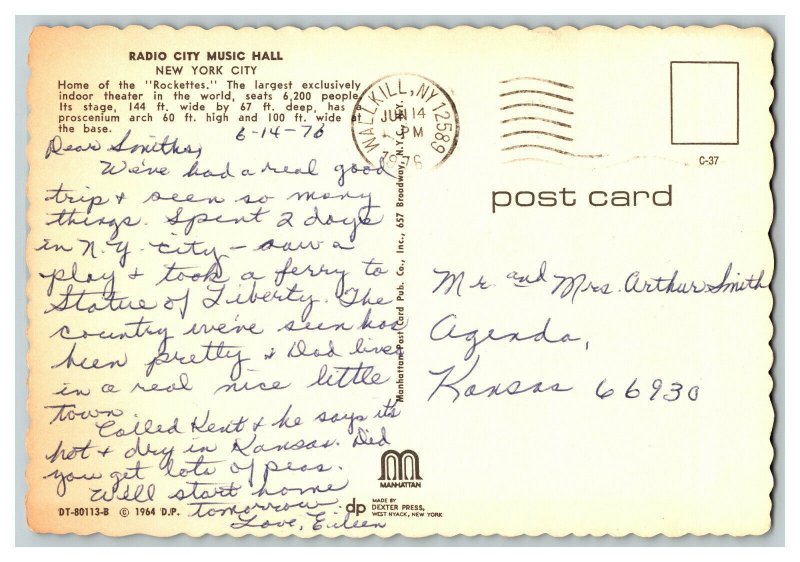 RADIO CITY MUSIC HALL
NEW YORK CITY
Home of the "Rockettes." The largest exclusively
indoor theater in the world, seats 6,200 people.
Its stage, 144 ft. wide by 67 ft. deep, has a
proscenium arch 60 ft. high and 100 ft. wide at
the base.
6-14-76
Dear Smiths,
We've had a real good
trip & seen so many
things. Spent 2 days
in N.Y. city - saw a
play & took a ferry to
Statue of Liberty. The
country we've seen has
been pretty & Dad lives
in a real nice little
town.
Called Kent & he says it's
hot & dry in Kansas. Did
you get lots of peas.
We'll start home
tomorrow
Love, Eileen
DT-80113-B © 1964 D.P.
Manhattan Post Card Pub. Co., Inc., 657 Broadway, N.Y.C., N.Y.
WALLKILL, NY 12589
JUN 14
PM
1976
C-37
post card
Mr. and Mrs. Arthur Smith
Agenda,
Kansas 66930
MANHATTAN
dp
MADE BY
DEXTER PRESS,
WEST NYACK, NEW YORK